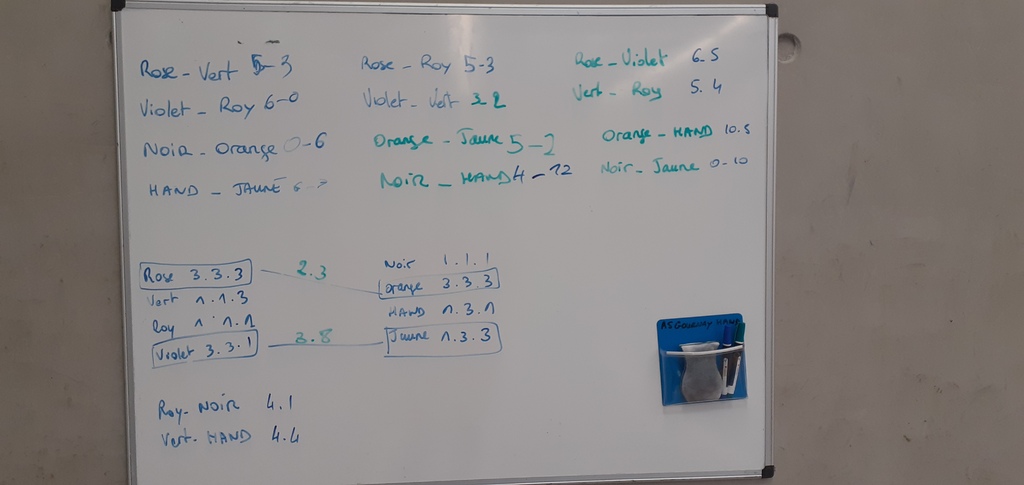 Rose - Vert 5-3
Rose - Roy 5-3
Rose - Violet 6-5
Violet - Roy 6-0
Violet - Vert 3-2
Vert - Roy 5.4
Noir - Orange 0-6
Orange - Jaune 5-2
Orange - HAND 10.5
HAND - JAUNE 6-7
NOIR - HAND 4-12
Noir - Jaune 0-10
Rose 3.3.3
2.3
Noir 1.1.1
Orange 3.3.3
Vert 1.1.3
Roy 1.1.1
HAND 1.3.1
Violet 3.3.1
3.8
Jaune 1.3.3
Roy-NOIR 4.1
Vert-HAND 4.4